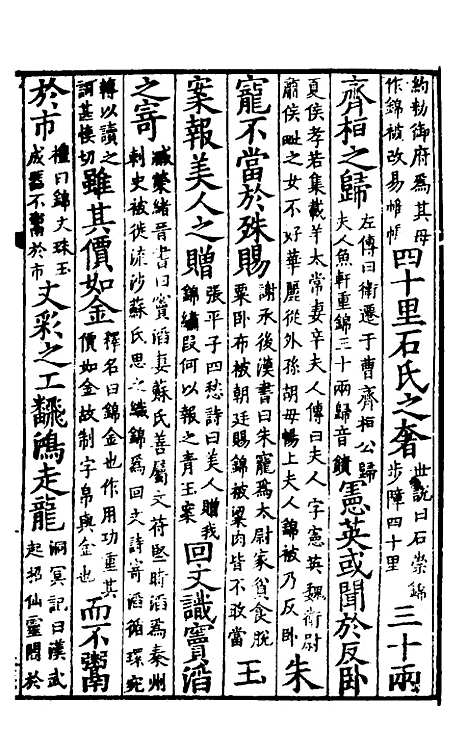 約勑御府爲其母
作錦被改易帷帳
四十里石氏之奢
世說曰石崇錦
步障四十里
三十兩
齊桓之歸
左傳曰衛遷于曹齊桓公歸
夫人魚軒重錦三十兩歸音饋
憲英或聞於反卧
夏侯孝若集載羊太常妻辛夫人傳曰夫人字憲英魏衛尉
肅侯毗之女不好華麗從外孫胡母暢上夫人錦被乃反卧
朱
寵不當於殊賜
謝承後漢書曰朱寵爲太尉家貧食脫
粟卧布被朝廷賜錦被粱肉皆不敢當
玉
案報美人之贈
張平子四愁詩曰美人贈我
錦繡段何以報之青玉案
回文識竇滔
之寄
臧榮緒晉書曰竇滔妻蘇氏善屬文符堅時滔爲秦州
刺史被徙流沙蘇氏思之織錦爲回文詩寄滔循環宛
轉以讀之
詞甚悽切
雖其價如金
釋名曰錦金也作用功重其
價如金故制字帛與金也
而不鬻
於市
禮曰錦文珠玉
成器不鬻於市
文彩之工飜鴻走龍
洞冥記曰漢武
起招仙靈閣於